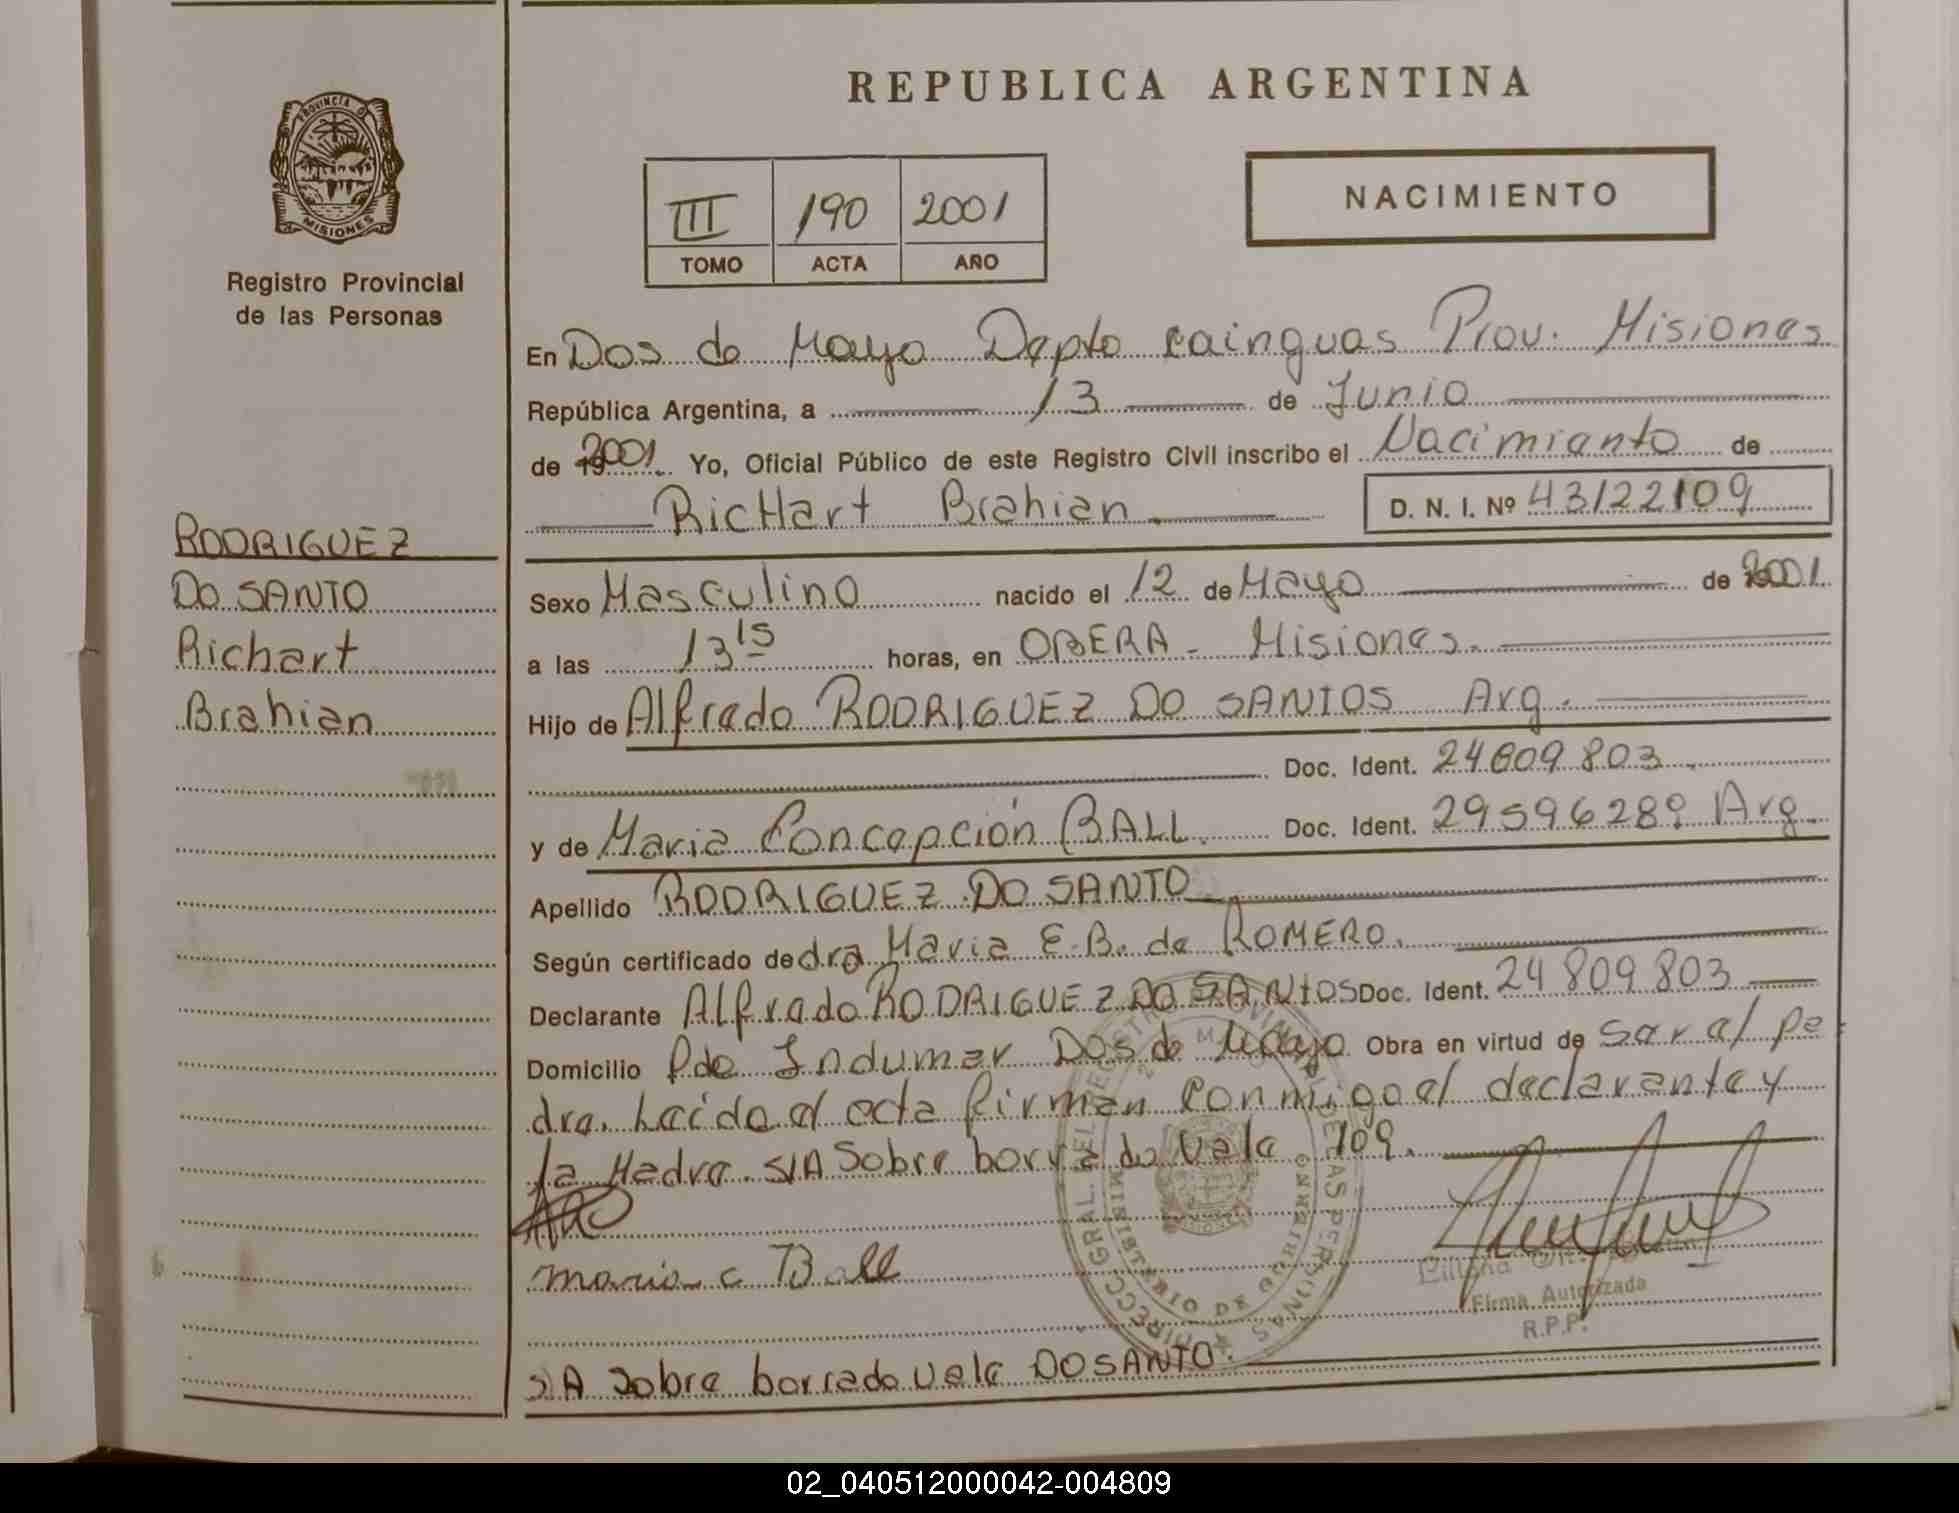 REPUBLICA ARGENTINA
PROVINCIA D
MISIONES
Registro Provincial
de las Personas
III 190 2001
TOMO ACTA AÑO
NACIMIENTO
En Dos de Mayo Depto cainguas Prov. Misiones
República Argentina, a 13 de Junio
de 2001 Yo, Oficial Público de este Registro Civil inscribo el Nacimiento de
RicHart Brahian D. N. I. Nº 43122109
RODRIGUEZ
DO SANTO
Richart
Brahian
Sexo Masculino nacido el 12 de Mayo de 2001
a las 13 15 horas, en OBERA - Misiones.
Hijo de Alfredo RODRIGUEZ DO SANTOS Arg.
Doc. Ident. 24809803
y de Maria Concepción BALL Doc. Ident. 29596289 Arg.
Apellido RODRIGUEZ DO SANTO
Según certificado de dra Maria E.B. de ROMERO.
Declarante Alfredo RODRIGUEZ DO SANTOS Doc. Ident. 24809803
Domicilio Pde Indumar Dos de Mayo Obra en virtud de ser el pa
dre. Leído el acta firman conmigo el declarante y
la Madre. S/A Sobre borrado vale 109.
maria c Ball
Firma Autorizada
R.P.P.
S/A Sobre borrado vale DO SANTO.
02_040512000042-004809